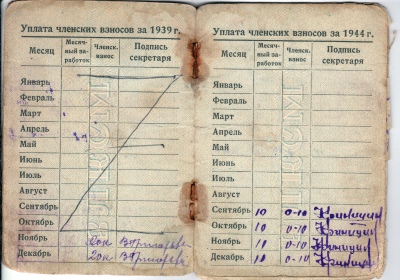 Уплата членских взносов за 1939 г.
Месяц Месяч-ный за-работок Членск. взнос Подпись секретаря
Январь
Февраль
Март
Апрель
Май
Июнь
Июль
Август
Сентябрь
Октябрь
Ноябрь
Декабрь
Уплата членских взносов за 1944 г.
Месяц Месяч-ный за-работок Членск. взнос Подпись секретаря
Январь
Февраль
Март
Апрель
Май
Июнь
Июль
Август
Сентябрь 10 0-10
Октябрь 10 0-10
Ноябрь 10 0-10
Декабрь 10 0-10